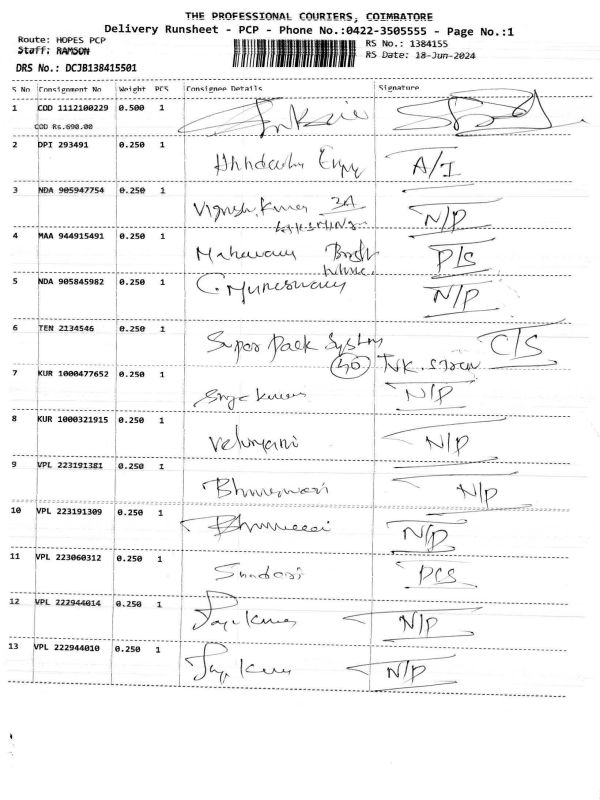 THE PROFESSIONAL COURIERS, COIMBATORE
Delivery Runsheet - PCP - Phone No.:0422-3505555 - Page No.:1
Route: HOPES PCP
RS No.: 1384155
Staff: RAMSON
RS Date: 18-Jun-2024
DRS No.: DCJB138415501
S No Consignment No Weight PCS Consignee Details Signature
1 COD 1112100229 0.500 1
COD Rs.690.00
2 DPI 293491 0.250 1 A/I
3 NDA 905947754 0.250 1 Vignesh Kumar 3A N/P
4 MAA 944915491 0.250 1 P/S
5 NDA 905845982 0.250 1 C. Muneswary N/P
6 TEN 2134546 0.250 1 Super Pack System C/S
50
7 KUR 1000477652 0.250 1 N/P
8 KUR 1000321915 0.250 1 Velumani N/P
9 VPL 223191381 0.250 1 N/P
10 VPL 223191309 0.250 1 N/P
11 VPL 223060312 0.250 1 Sundari PCS
12 VPL 222944014 0.250 1 N/P
13 VPL 222944010 0.250 1 N/P